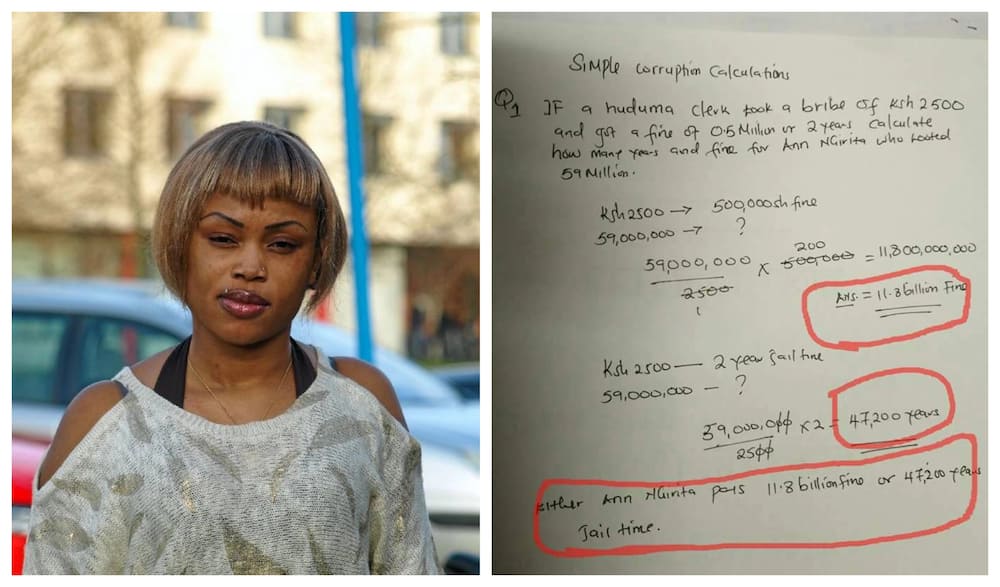 Simple corruption Calculations
Q1 IF a huduma clerk took a bribe of Ksh 2500
and got a fine of 0.5 Million or 2 years Calculate
how many years and fine for Ann NGirita who looted
59 Million.
Ksh 2500 → 500,000sh fine
59,000,000 → ?
200
59,000,000 × 500,000 = 11,800,000,000
2500
1
Ans. = 11.8 billion Fine
Ksh 2500 — 2 year jail time
59,000,000 — ?
59,000,000 × 2 = 47,200 years
2500
Either Ann NGirita pays 11.8 billion fine or 47,200 years
Jail time.